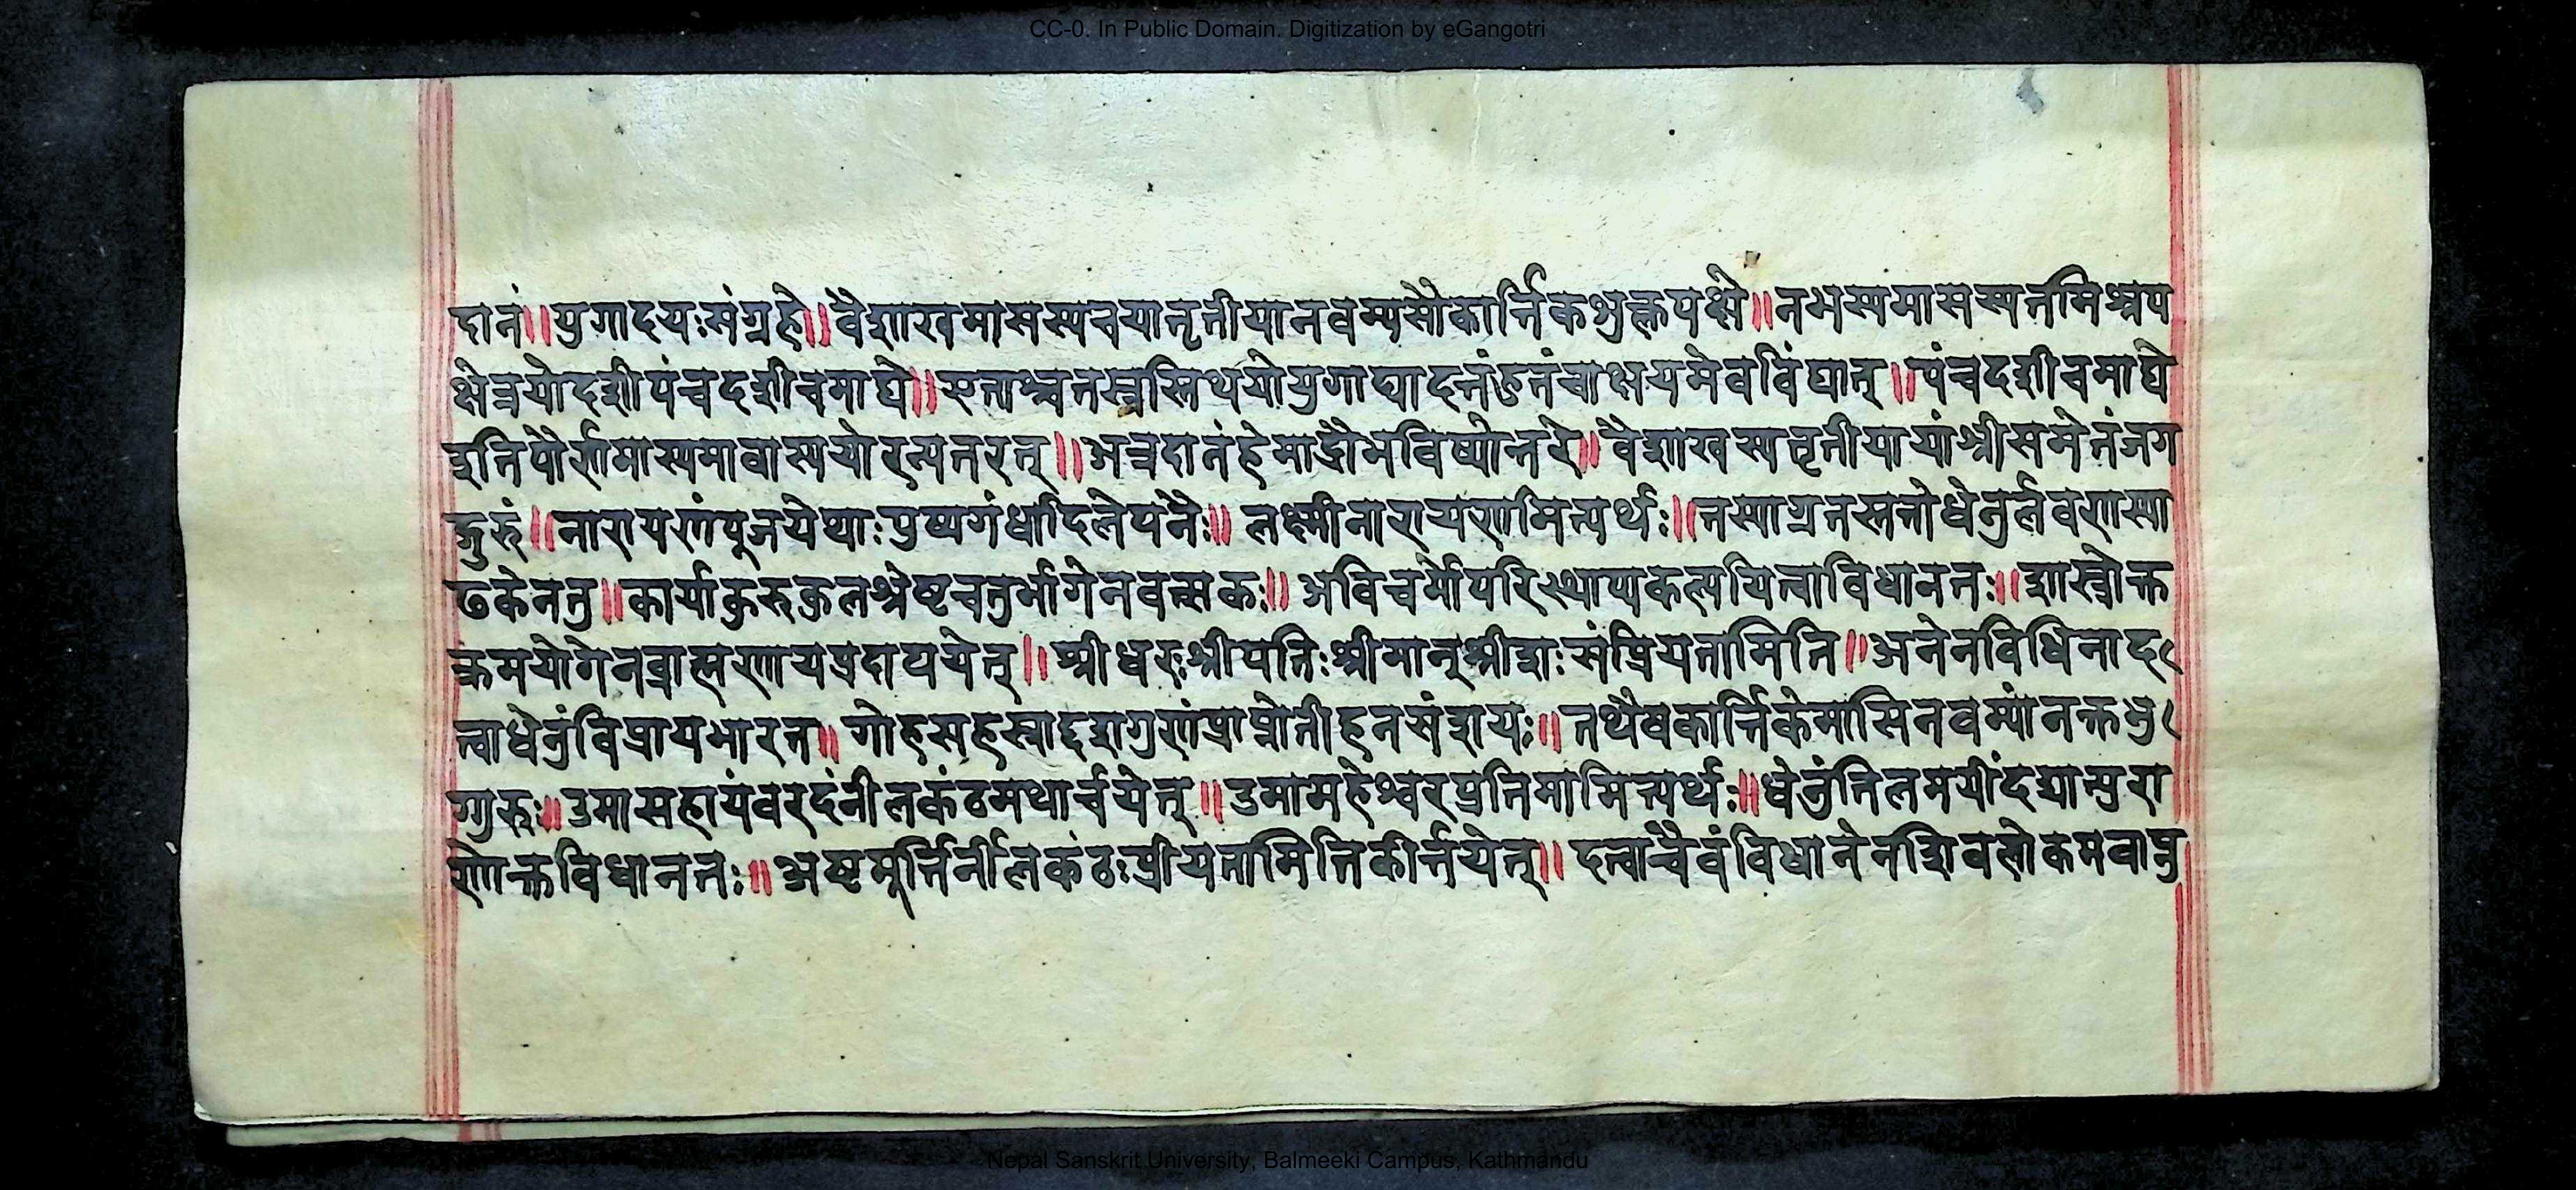 CC-0. In Public Domain. Digitization by eGangotri
दानं॥युगादयःसंग्रहे॥वैशाखमासस्यचयातृतीयानवम्यसौकार्त्तिकशुक्लपक्षे॥नभस्यमासस्यतमिश्रप
क्षेत्रयोदशीपंचदशीचमाघे॥एताश्चतस्रस्तिथयोयुगाद्यादत्तंहुतंचाक्षयमेवविंद्यात्॥पंचदशीचमाघे
इतिपौर्णमास्यमावास्ययोरन्यतरत्॥अत्रदानंहेमाद्रौभविष्योत्तरे॥वैशाखस्यतृतीयायांश्रीसमेतंजग
द्गुरुं॥नारायणंपूजयेथाःपुष्पगंधादिलेपनैः॥लक्ष्मीनारायणमित्यर्थः॥तस्याग्रतस्ततोधेनुर्लवणस्या
ढकेनतु॥कार्याकुरुकुलश्रेष्टचतुर्भागेनवत्सकः॥अविचर्मोपरिस्थाप्यकल्पयित्वाविधानतः॥शास्त्रोक्त
क्रमयोगेनब्राह्मणायप्रदापयेत्॥श्रीधरःश्रीपतिःश्रीमान्श्रीशःसंप्रियतामिति॥अनेनविधिनाद
त्वाधेनुंविप्रायभारत॥गोहसहस्राद्दशगुणंप्राप्नोतीहनसंशयः॥तथैवकार्त्तिकेमासिनवम्यांनक्तभु
ग्गुरुः॥उमासहायंवरदंनीलकंठमथार्चयेत्॥उमामहेश्वरप्रतिमामित्यर्थः॥धेनुंतिलमयींदद्यात्पुरा
णोक्तविधानतः॥अष्टमूर्त्तिर्नीलकंठःप्रीयतामितिकीर्त्तयेत्॥दत्वाचैवंविधानेनशिवलोकमवाप्नु
Nepal Sanskrit University, Balmeeki Campus, Kathmandu